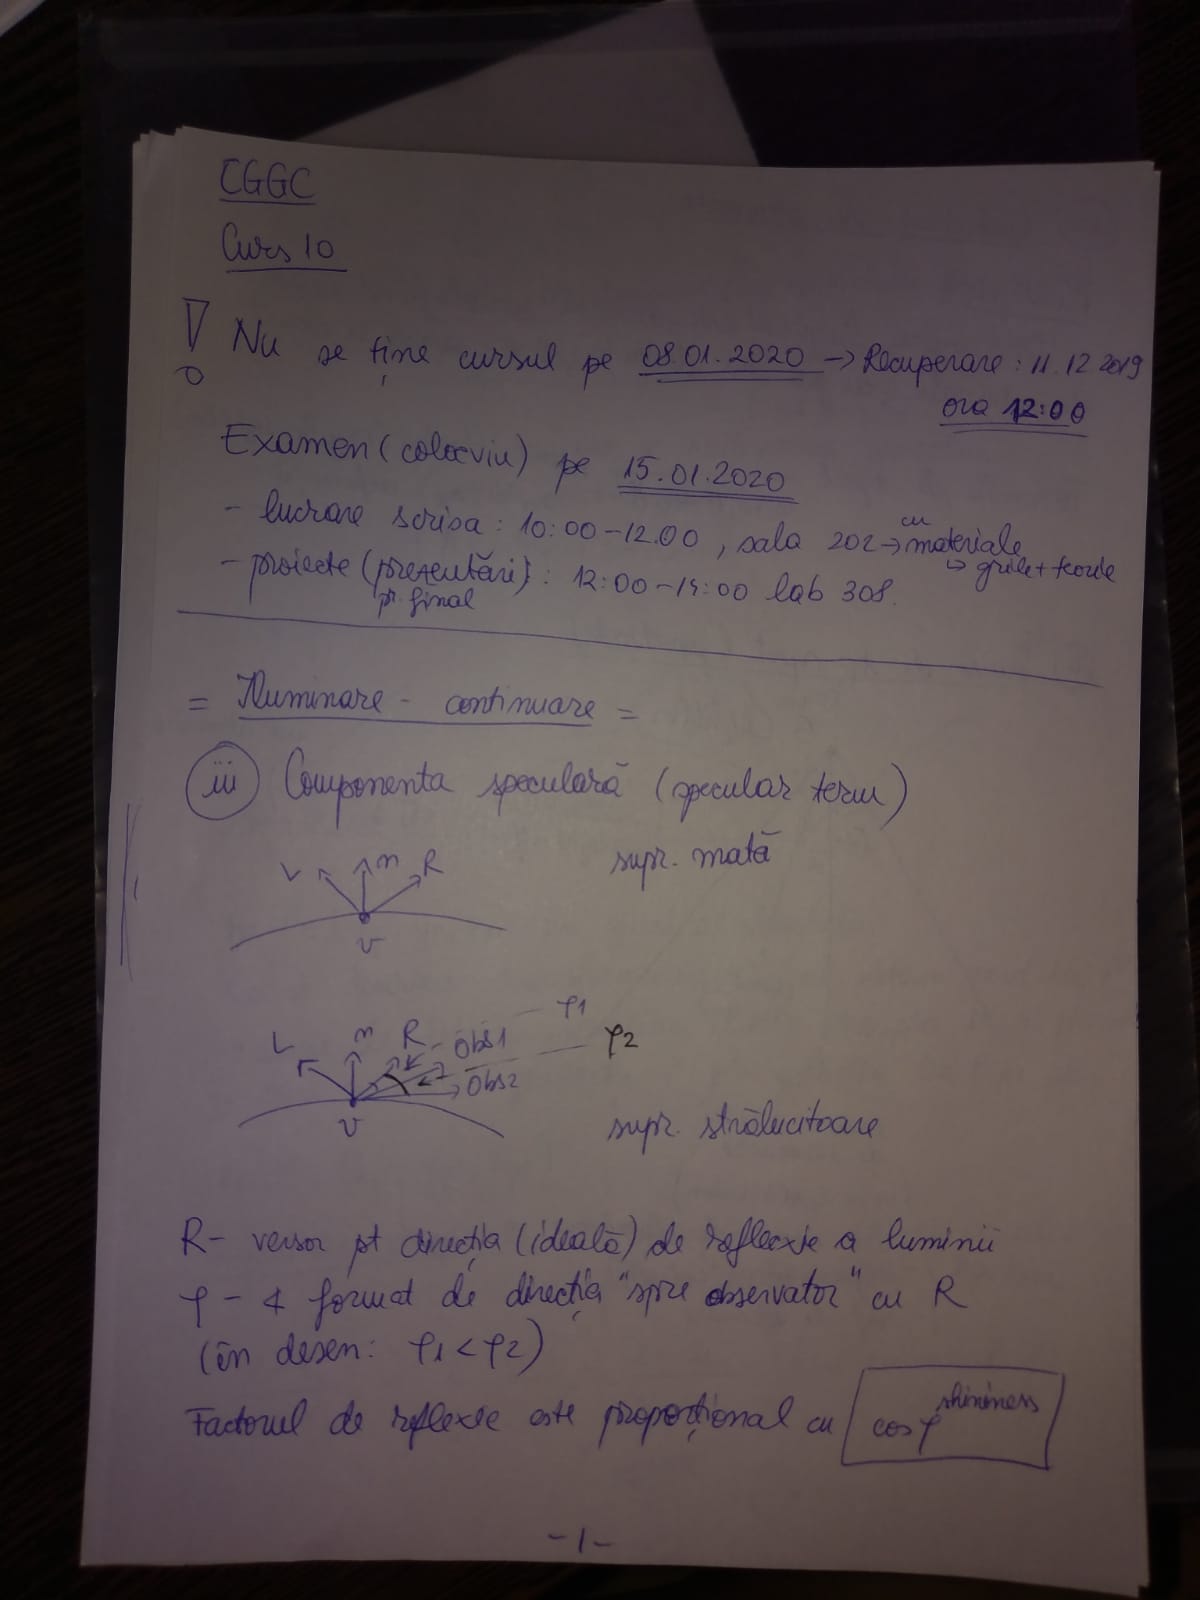 CGGC
Curs 10
! Nu se ține cursul pe 08.01.2020 → Recuperare: 11.12.2019
ora 12:00
Examen (colocviu) pe 15.01.2020
- lucrare scrisa: 10:00-12.00, sala 202 → cu materiale
↳ grile + teorie
- proiecte (prezentări): 12:00-14:00 lab 308.
pr. final
= Iluminare - continuare =
iii Componenta speculară (specular term)
supr. mată
L n R
v
L n R Obs1 φ1
Obs2 φ2
v
supr. strălucitoare
R - versor pt direcția (ideală) de reflexie a luminii
φ - ∢ format de direcția "spre observator" cu R
(în desen: φ1 < φ2)
Factorul de reflexie este proporțional cu cos φ^shininess
-1-